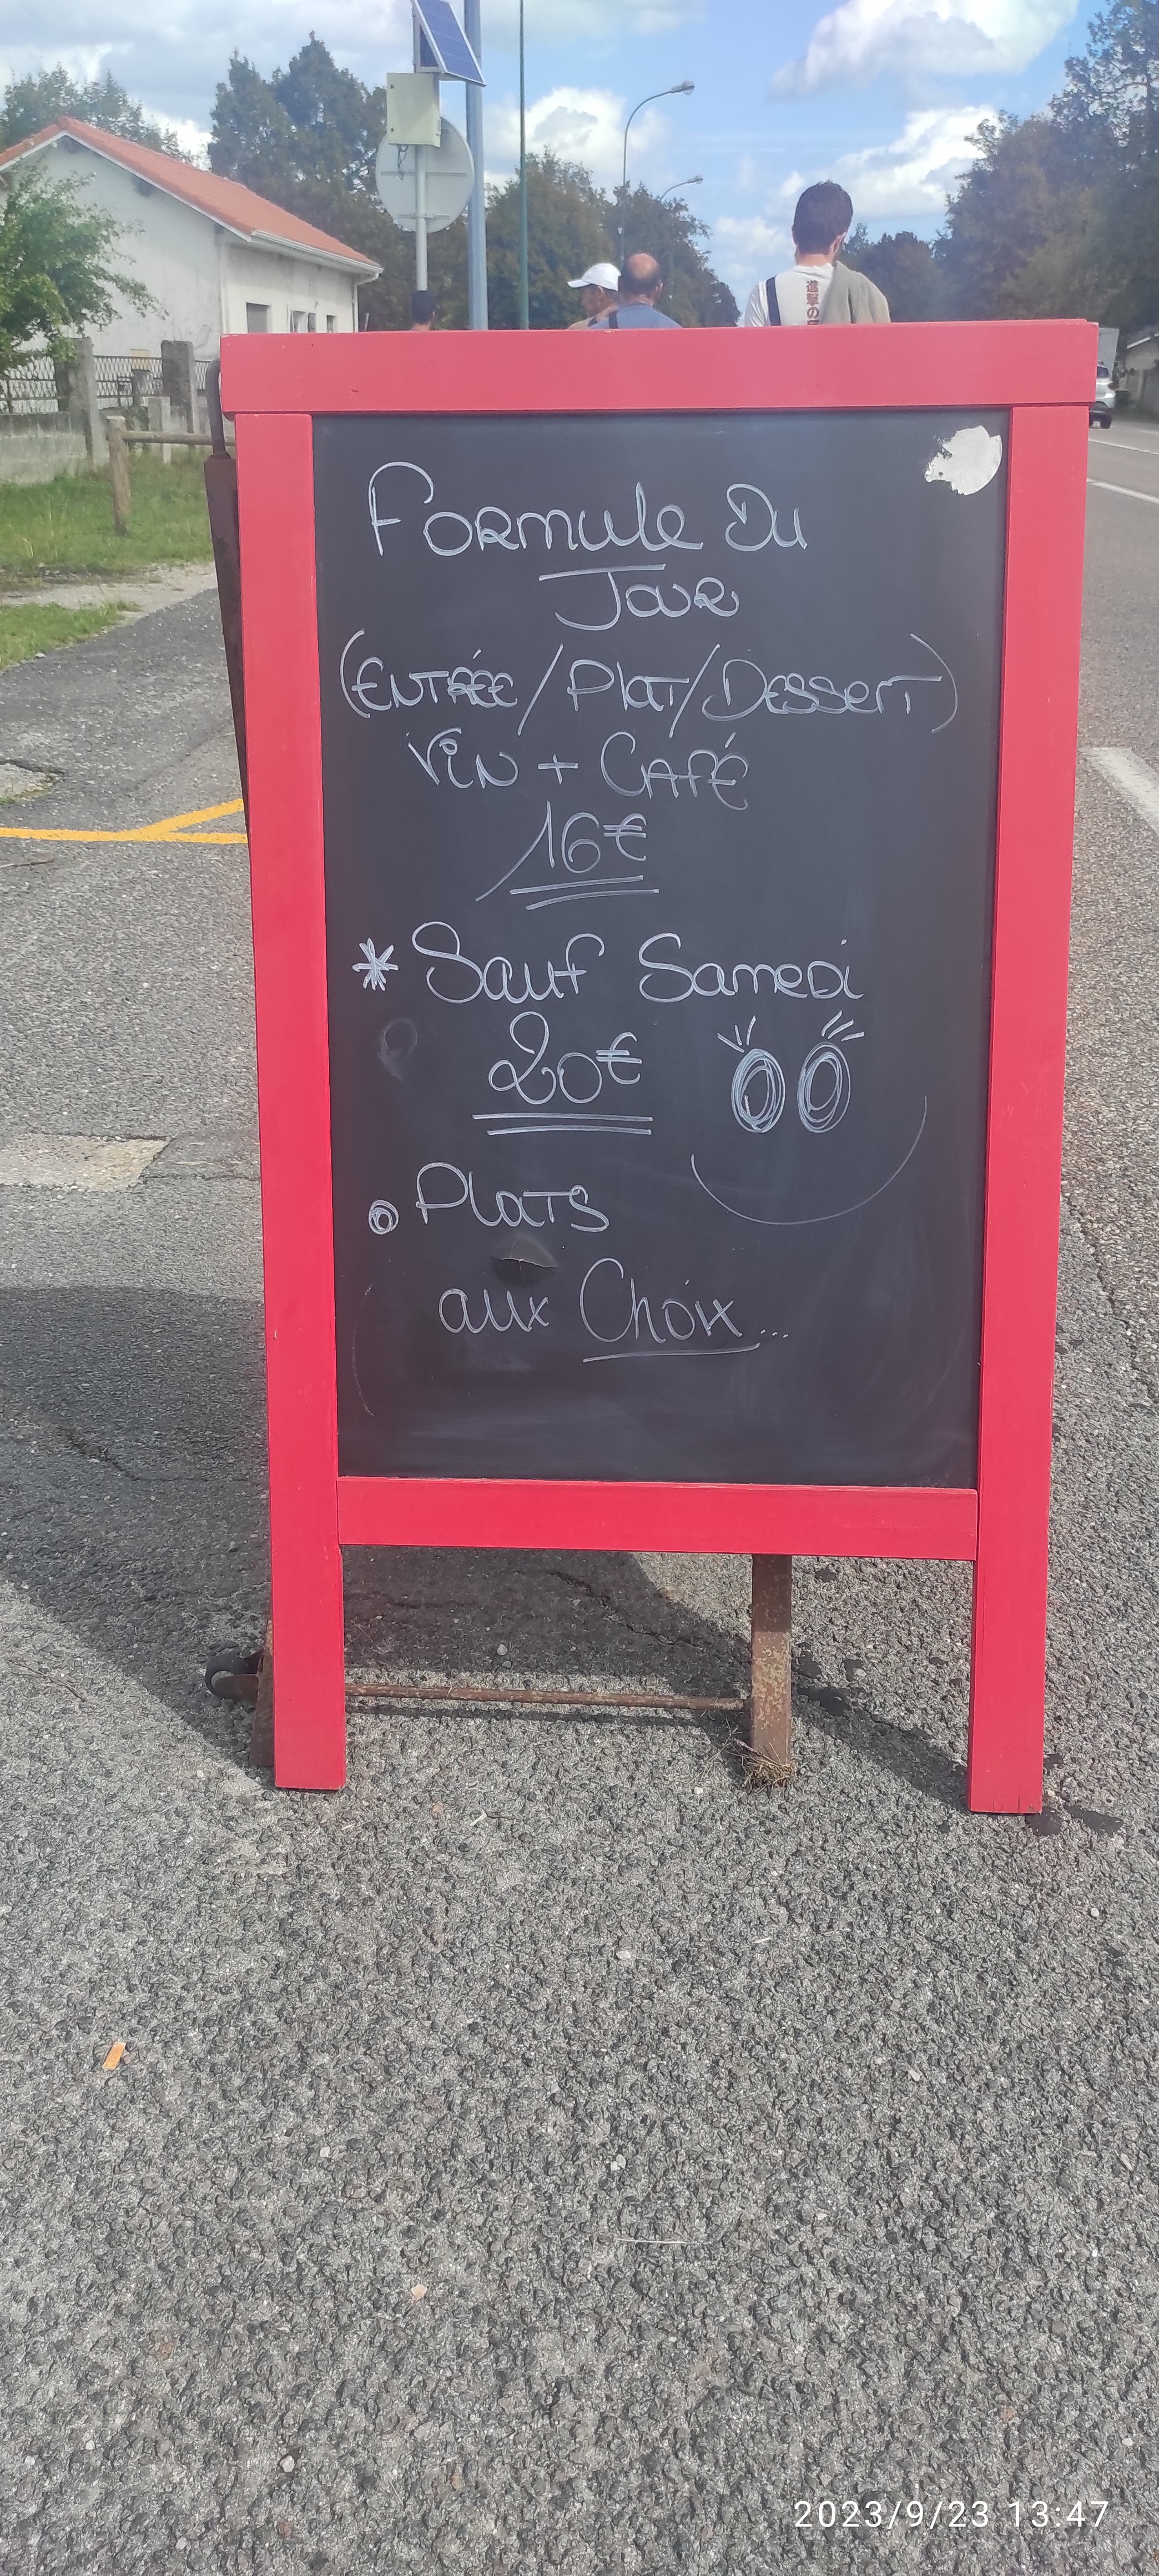 進撃の
Formule Du
Jour
(Entrée/Plat/Dessert)
Vin + Café
16€
* Sauf Samedi
20€
Plats
aux Choix...
2023/9/23 13:47